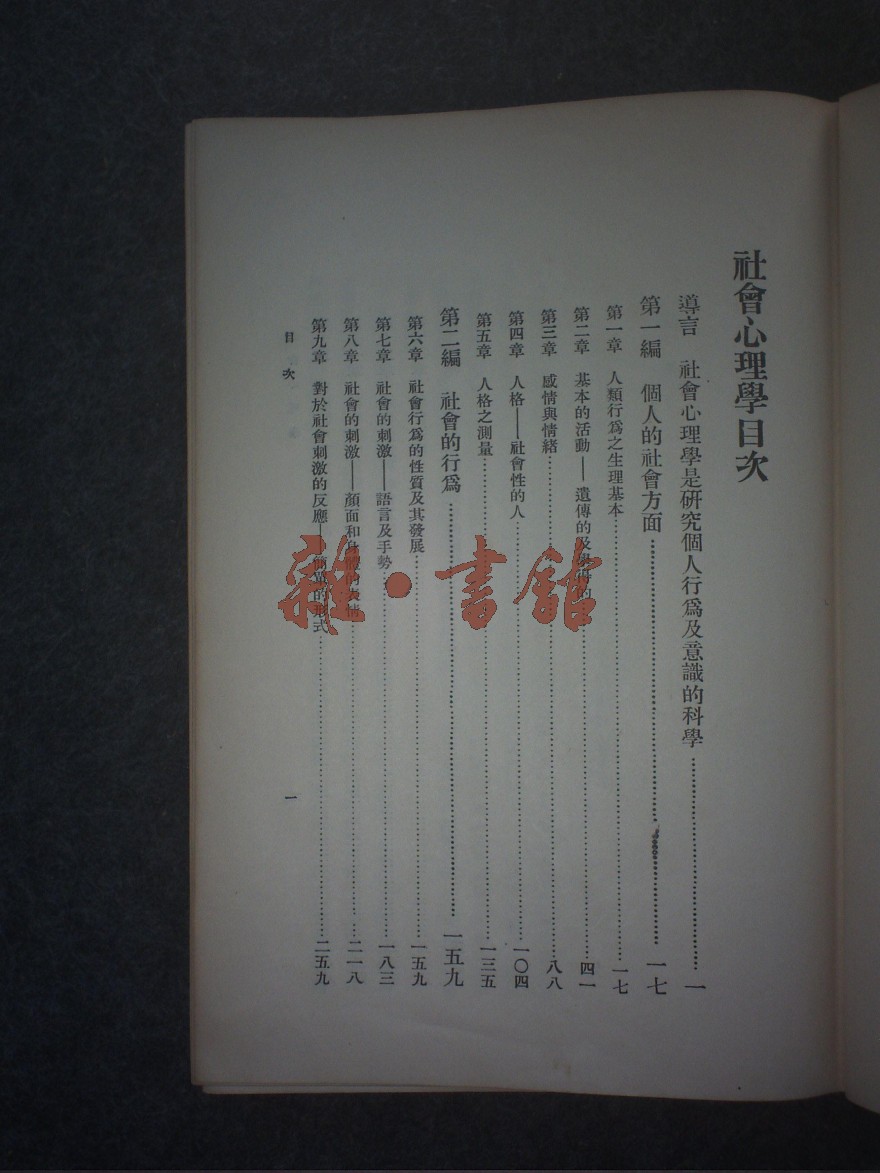 社會心理學目次
導言 社會心理學是研究個人行爲及意識的科學 一
第一編 個人的社會方面 一七
第一章 人類行爲之生理基本 一七
第二章 基本的活動——遺傳的及學得的 四一
第三章 感情與情緒 八八
第四章 人格——社會性的人 一〇四
第五章 人格之測量 一三五
第二編 社會的行爲 一五九
第六章 社會行爲的性質及其發展 一五九
第七章 社會的刺激——語言及手勢 一八三
第八章 社會的刺激——顏面和身體的表情 二一八
第九章 對於社會刺激的反應——簡單的形式 二五九
目次 一
雜·書館